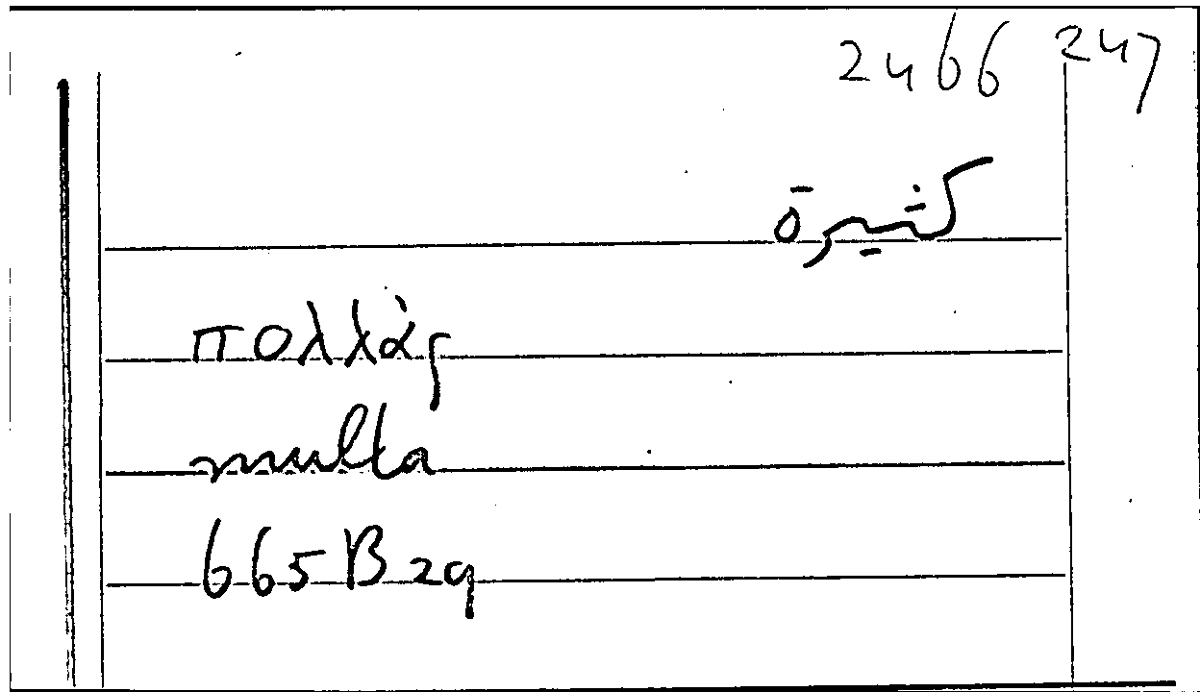 2466 247
كثيرة
πολλάς
multa
665B29